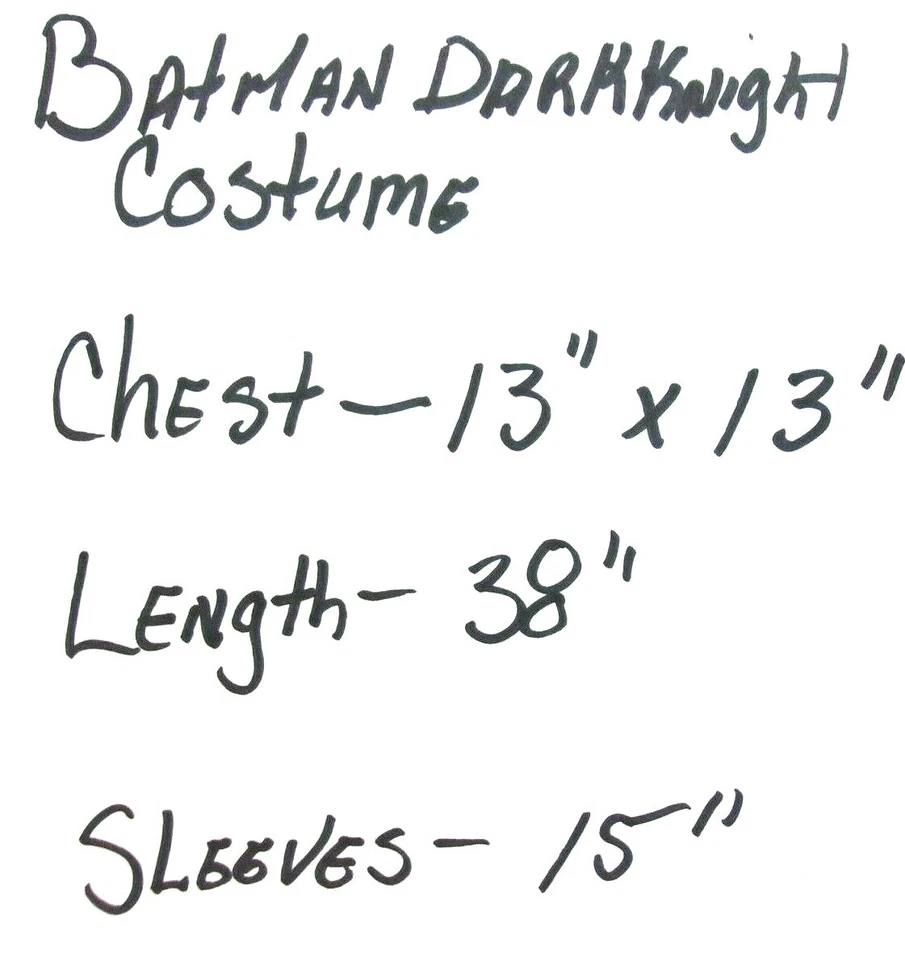 Batman Dark Knight
Costume
Chest - 13" x 13"
Length - 38"
Sleeves - 15"